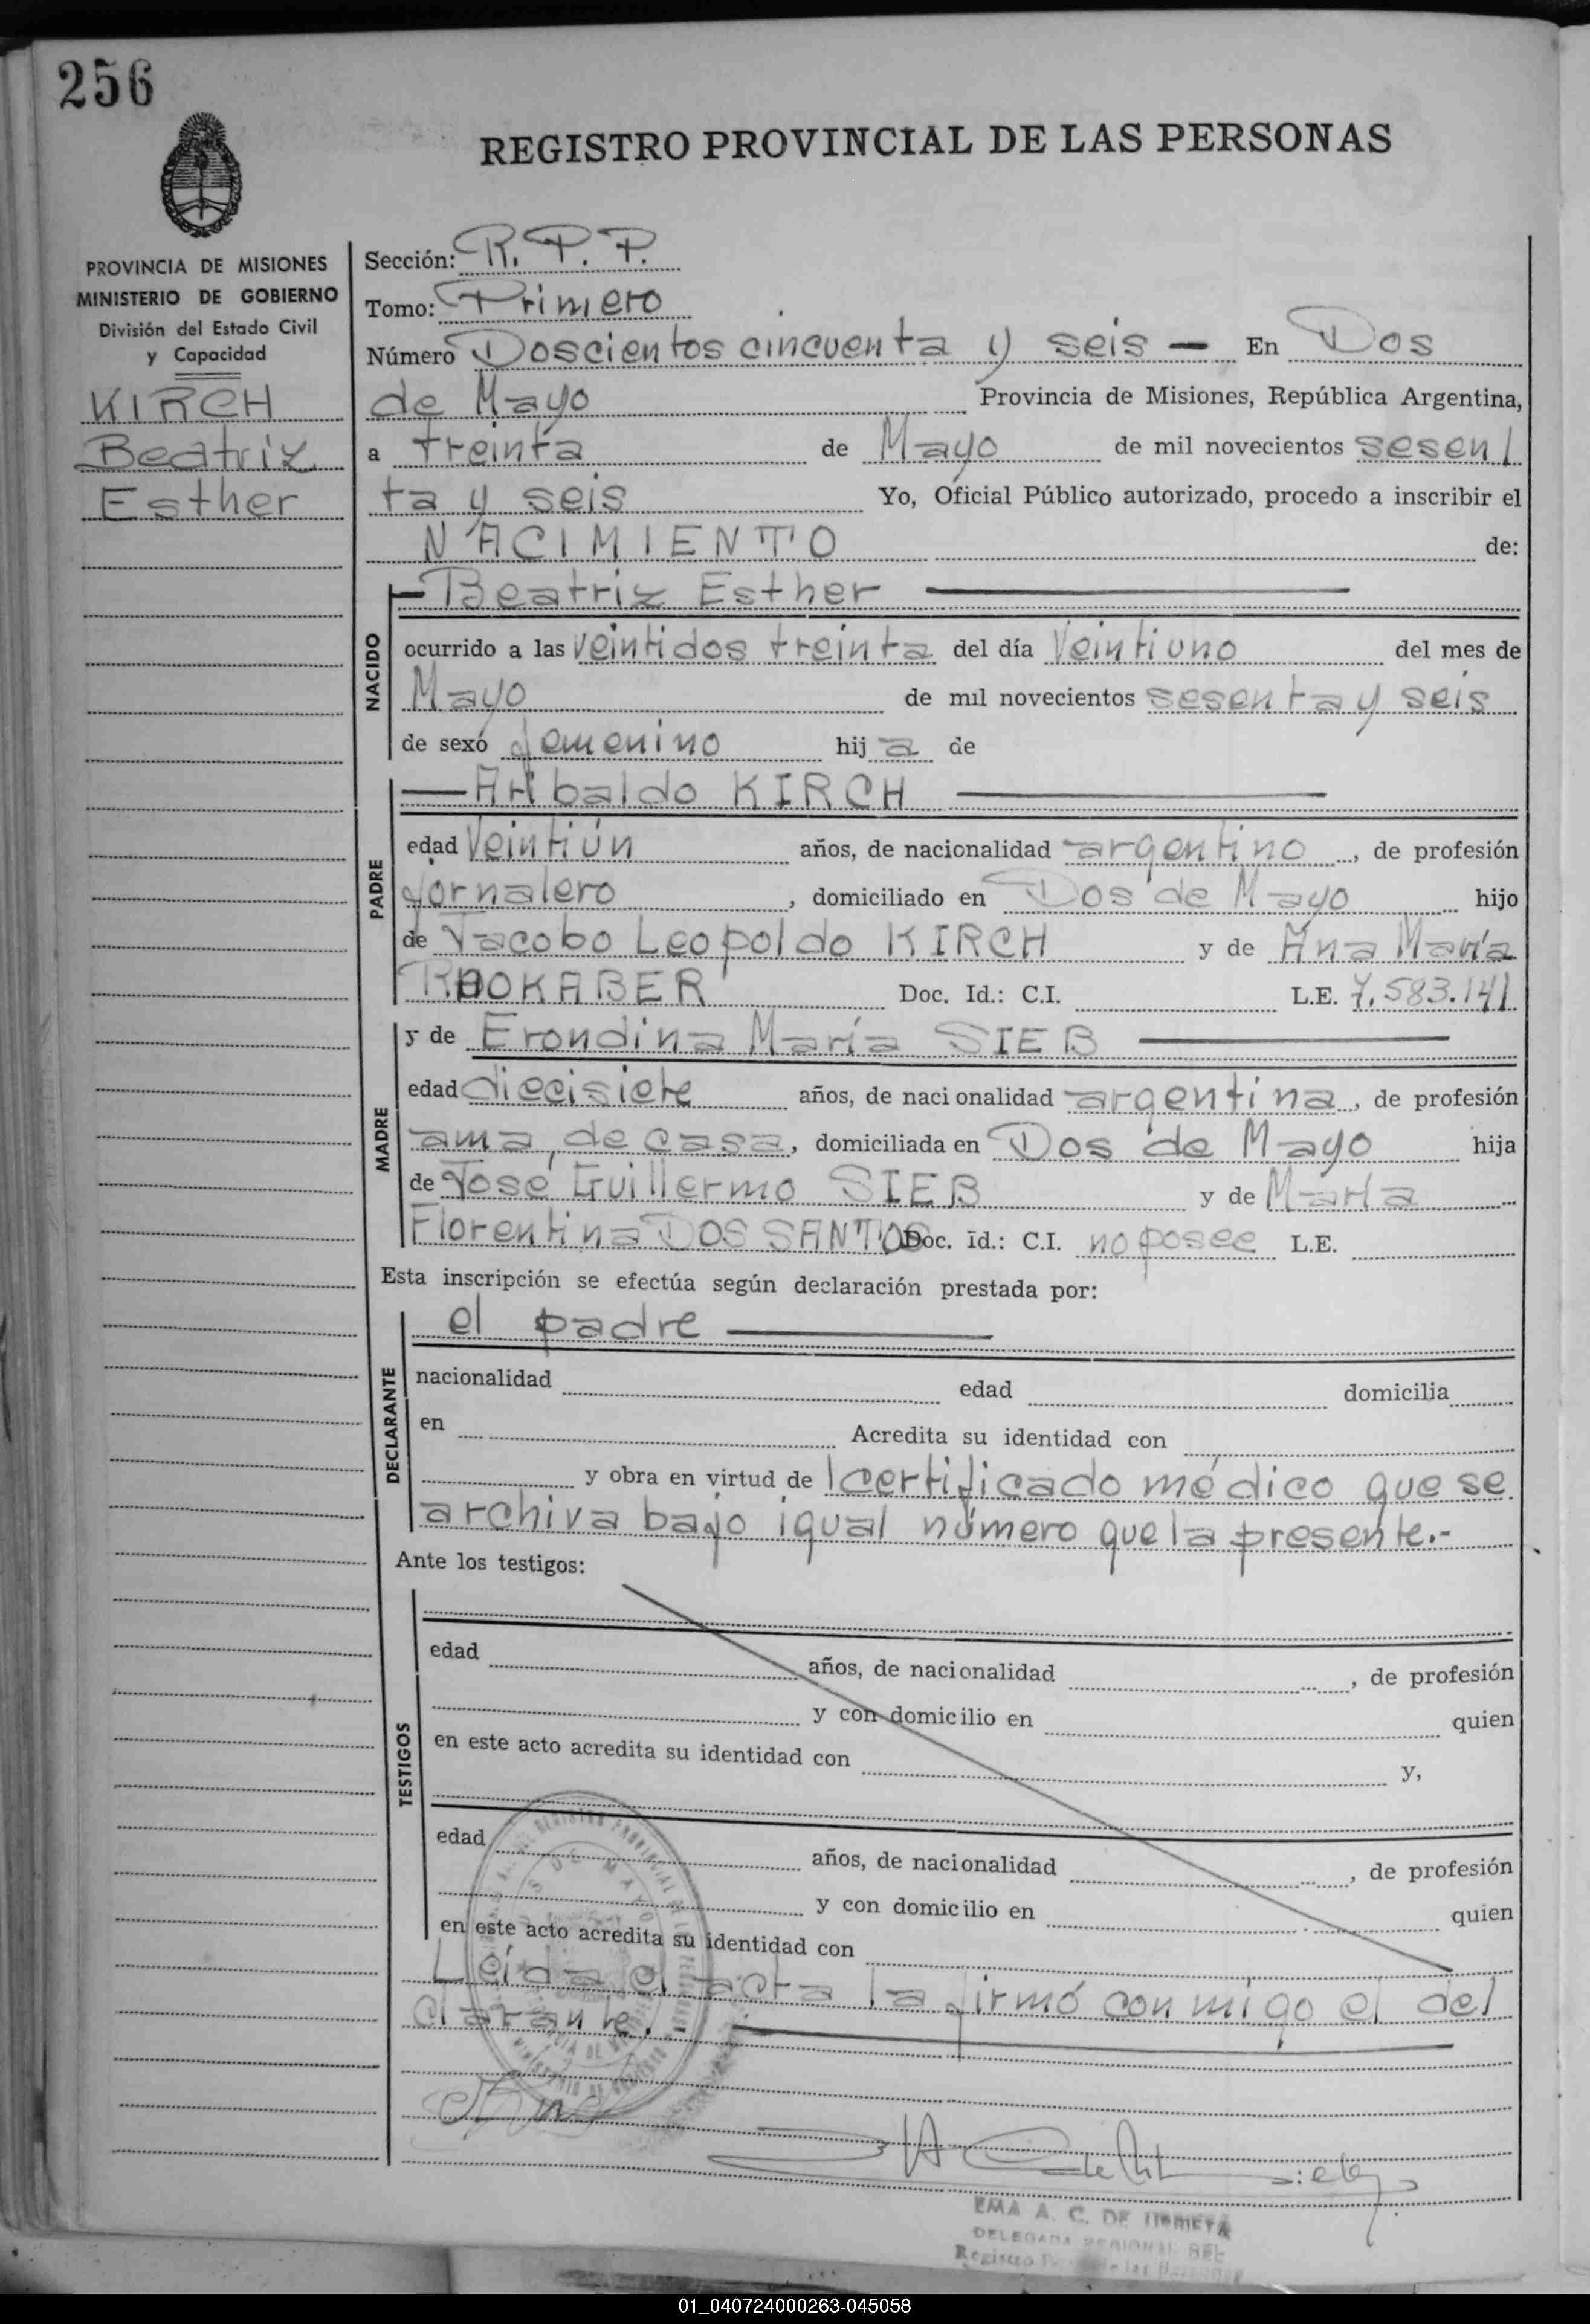 256
REGISTRO PROVINCIAL DE LAS PERSONAS
PROVINCIA DE MISIONES
MINISTERIO DE GOBIERNO
División del Estado Civil
y Capacidad
KIRCH
Beatriz
Esther
Sección: R. P. P.
Tomo: Primero
Número Doscientos cincuenta y seis — En Dos
de Mayo Provincia de Misiones, República Argentina,
a treinta de Mayo de mil novecientos sesen
ta y seis Yo, Oficial Público autorizado, procedo a inscribir el
NACIMIENTO de:
NACIDO
— Beatriz Esther —
ocurrido a las veintidos treinta del día Veintiuno del mes de
Mayo de mil novecientos sesenta y seis
de sexó femenino hija de
PADRE
— baldo KIRCH —
edad Veintiún años, de nacionalidad argentino, de profesión
jornalero, domiciliado en Dos de Mayo hijo
de Jacobo Leopoldo KIRCH y de Ana María
Doc. Id.: C.I. L.E. 7.583.141
MADRE
y de Erondina María SIEB —
edad diecisiete años, de naci onalidad argentina, de profesión
ama de casa, domiciliada en Dos de Mayo hija
de José Guillermo SIEB y de María
Florentina DOS SANTOS Doc. id.: C.I. no posee L.E.
Esta inscripción se efectúa según declaración prestada por:
DECLARANTE
el padre —
nacionalidad edad domicilia
en Acredita su identidad con
y obra en virtud de certificado médico que se
archiva bajo igual número que la presente.-
Ante los testigos:
TESTIGOS
edad años, de nacionalidad , de profesión
y con domicilio en quien
en este acto acredita su identidad con y,
edad años, de nacionalidad , de profesión
y con domicilio en quien
en este acto acredita su identidad con
Leída el acta la firmó conmigo el de
clarante. -
EMA A. C. DE URRIETA
DELEGADA REGIONAL DEL
01_040724000263-045058